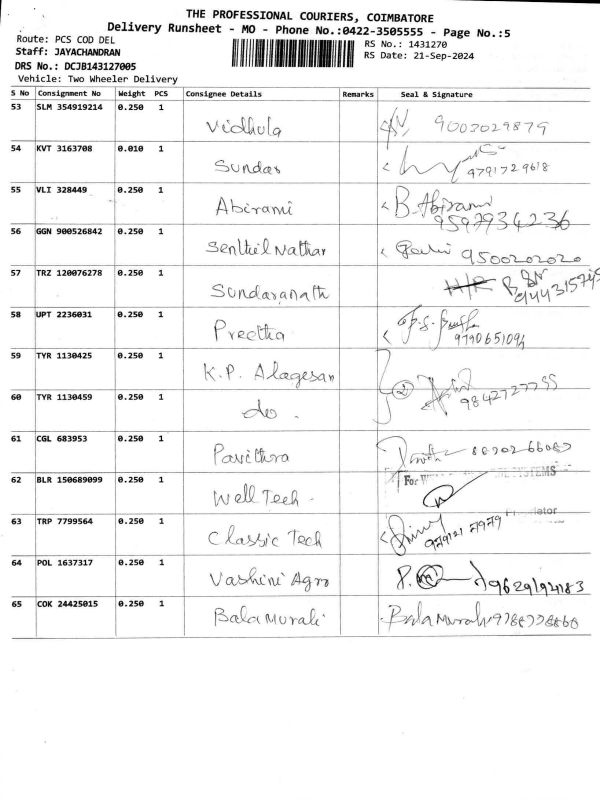 THE PROFESSIONAL COURIERS, COIMBATORE
Delivery Runsheet - MO - Phone No.:0422-3505555 - Page No.:5
Route: PCS COD DEL
RS No.: 1431270
Staff: JAYACHANDRAN
RS Date: 21-Sep-2024
DRS No.: DCJB143127005
Vehicle: Two Wheeler Delivery
S No Consignment No Weight PCS Consignee Details Remarks Seal & Signature
53 SLM 354919214 0.250 1 Vidhula 9003029879
54 KVT 3163708 0.010 1 Sundar 9791729618
55 VLI 328449 0.250 1 Abirami B. Abirami 9597934236
56 GGN 900526842 0.250 1 Senthil Nathan 9500202020
57 TRZ 120076278 0.250 1 Sundaranath
58 UPT 2236031 0.250 1 Preetha 9790651094
59 TYR 1130425 0.250 1 K.P. Alagesan
60 TYR 1130459 0.250 1 do. 2 9842727755
61 CGL 683953 0.250 1 Pavithra
62 BLR 150689099 0.250 1 Well Tech - For SYSTEMS
63 TRP 7799564 0.250 1 Classic Tech
64 POL 1637317 0.250 1 Vashini Agro 9629194183
65 COK 24425015 0.250 1 Balamurali Balamurali